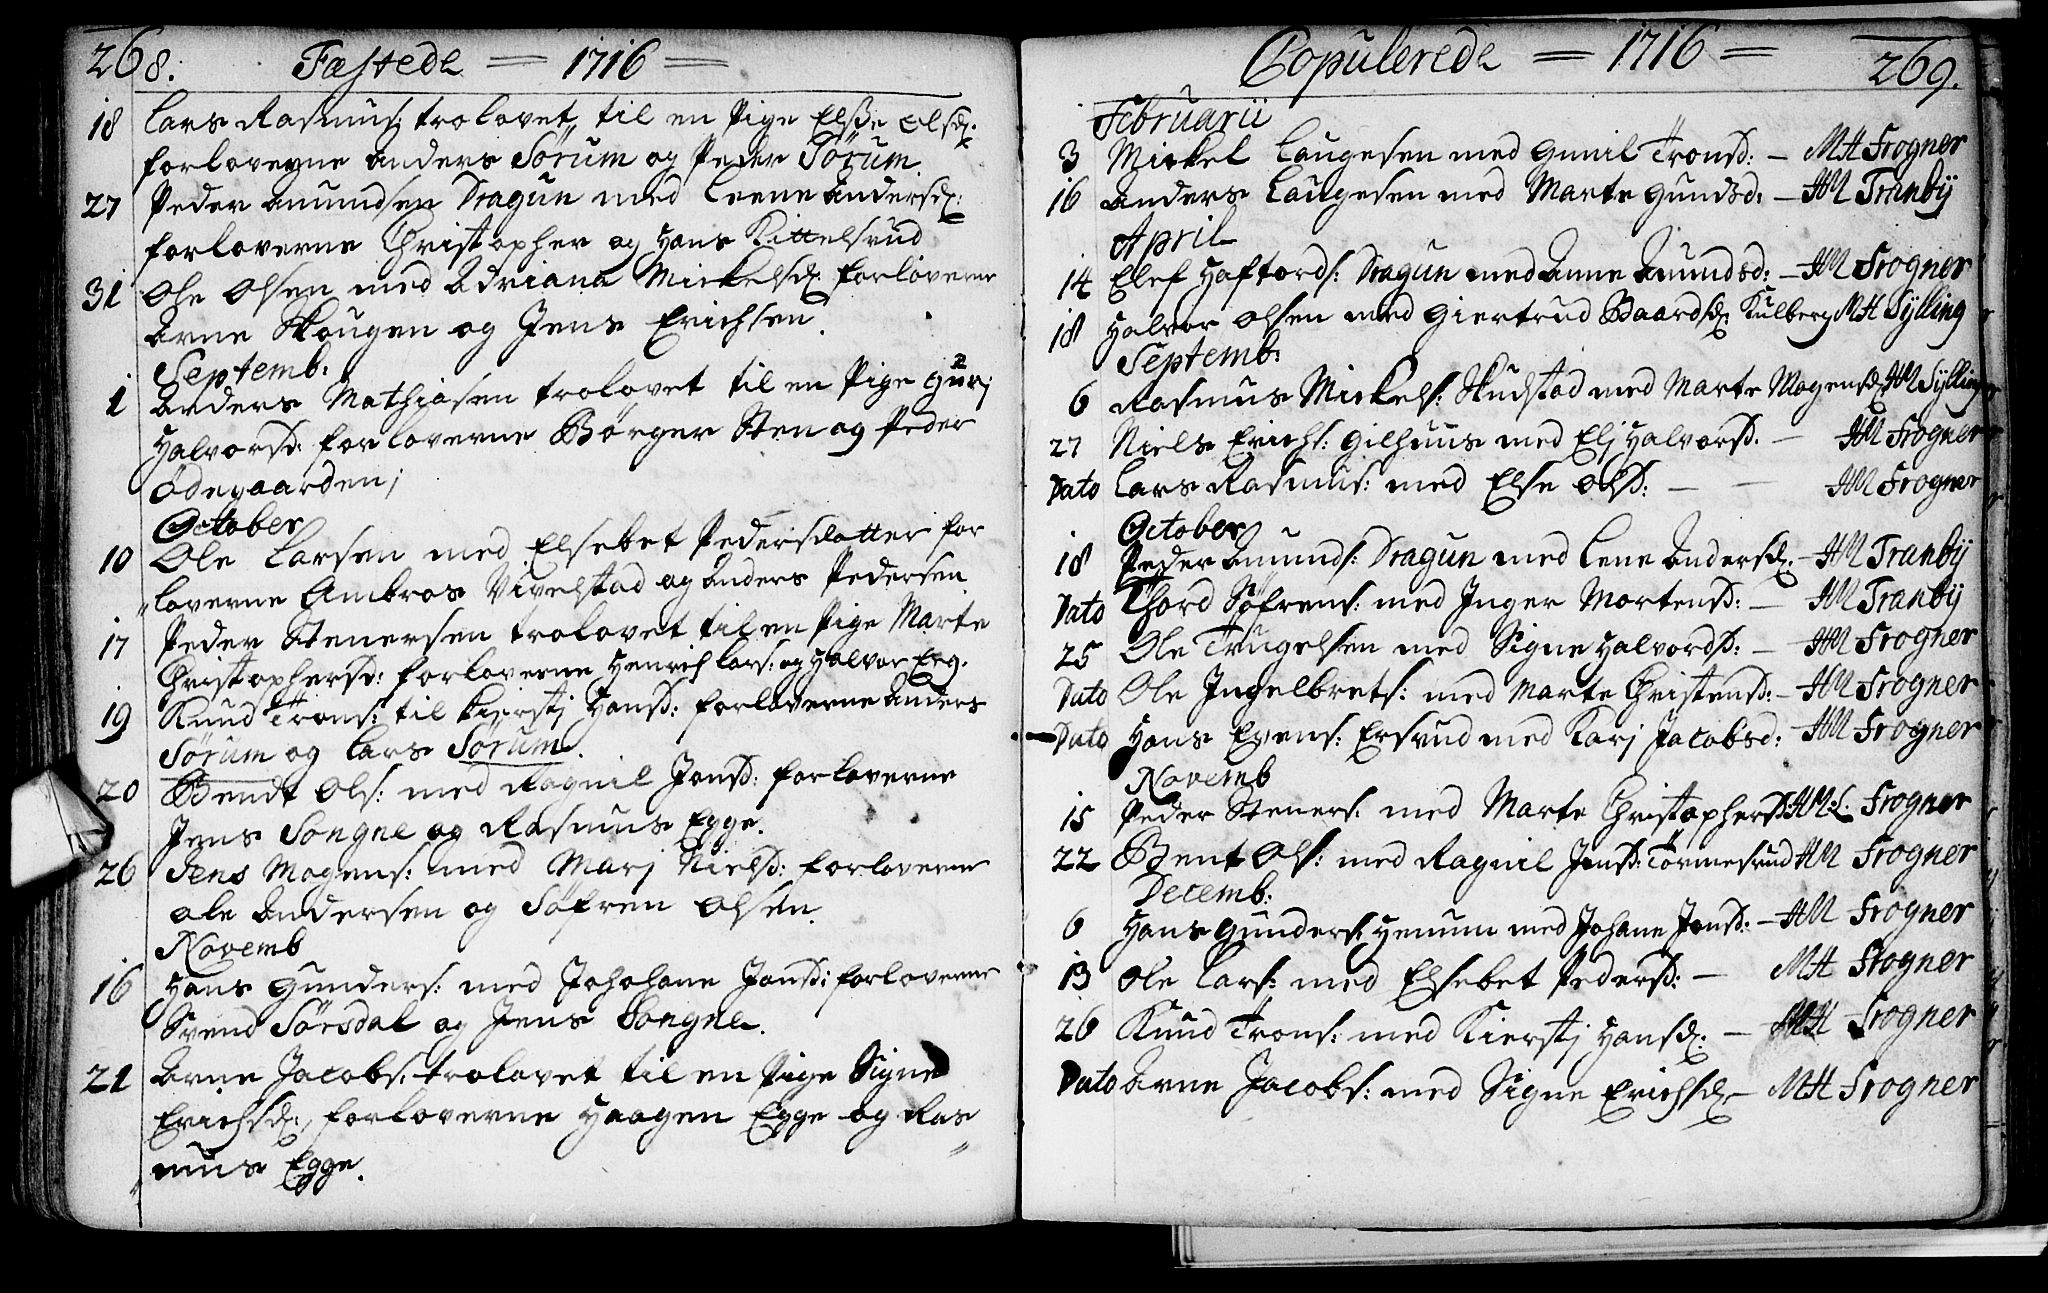 268.
Fæstede = 1716 =
18 Lars Rasmus: trolovet til en Pige Elsse Olsd:
forloverne Anders Sörum og Peder Sörum.
27 Peder Amundsen Dragun med Leene Andersd:
forloverne Christopher og Hans Kittelsrud
31 Ole Olsen med Adriana Mickelsd: forloverne
Arne Skougen og Jens Erichsen.
Septemb:
1 Anders Mathiasen trolovet til en Pige Gurj
Halvorsd: forloverne Börger Sten og Peder
Ödegaarden;
October
10 Ole Larsen med Elsebet Pedersdatter for
loverne Ambros Vivelstad og Anders Pedersen
17 Peder Stenersen trolovet til en Pige Marte
Christophersd: forloverne Henrich Lars: og Halvor Eeg.
19 Knud Trons: til Kierstj Hansd: forloverne Anders
Sörum og Lars Sörum.
20 Bendt Ols: med Ragnil Jonsd: forloverne
Jens Songne og Rasmus Egge.
26 Jens Mogens: med Marj Nielsd: forloverne
Ole Andersen og Söfren Olsen.
Novemb
16 Hans Gunders: med Johohane Jonsd: forloverne
Svend Sörsdal og Jens Songne.
21 Arne Jacobs: trolovet til en Pige Signe
Erichsd:, forloverne Haagen Egge og Ras
mus Egge.
Copulerede = 1716 =
269.
Februarii
3 Mickel Laugesen med Gunil Tronsd: – MH Frogner
16 Anders Laugesen med Marte Gundsd: – HM Tranby
April
14 Elef Haftords: Dragun med Anne Amundsd: – HM Frogner
18 Halvor Olsen med Giertrud Baardsd: Kulberg MH Sylling
Septemb:
6 Rasmus Mickels: Skudstad med Marte Mogensd: HM Sylling
27 Niels Erichs: Gilhuus med Elj Halvorsd. – HM Frogner
Dato Lars Rasmus: med Else Olsd: – – HM Frogner
October
18 Peder Amunds: Dragun med Lene Andersd: – HM Tranby
Dato Thord Söfrens: med Inger Mortensd: – HM Tranby
25 Ole Trugelsen med Signe Halvordsd: – HM Frogner
Dato Ole Ingelbrets: med Marte Christensd: – HM Frogner
Dato Hans Evens: Ersrud med Karj Jacobsd: HM Frogner
Novemb
15 Peder Steners: med Marte Christophersd: HM:L. Frogner
22 Bent Ols: med Ragnil Jonsd: Tormesrud HM Frogner
Decemb:
6 Hans Gunders: Henum med Johane Jonsd: – HM Frogner
13 Ole Lars: med Elsebet Pedersd: – MH Frogner
26 Knud Trons: med Kierstj Hansd: – MH Frogner
Dato Arne Jacobs: med Signe Erichsd: – MH Frogner